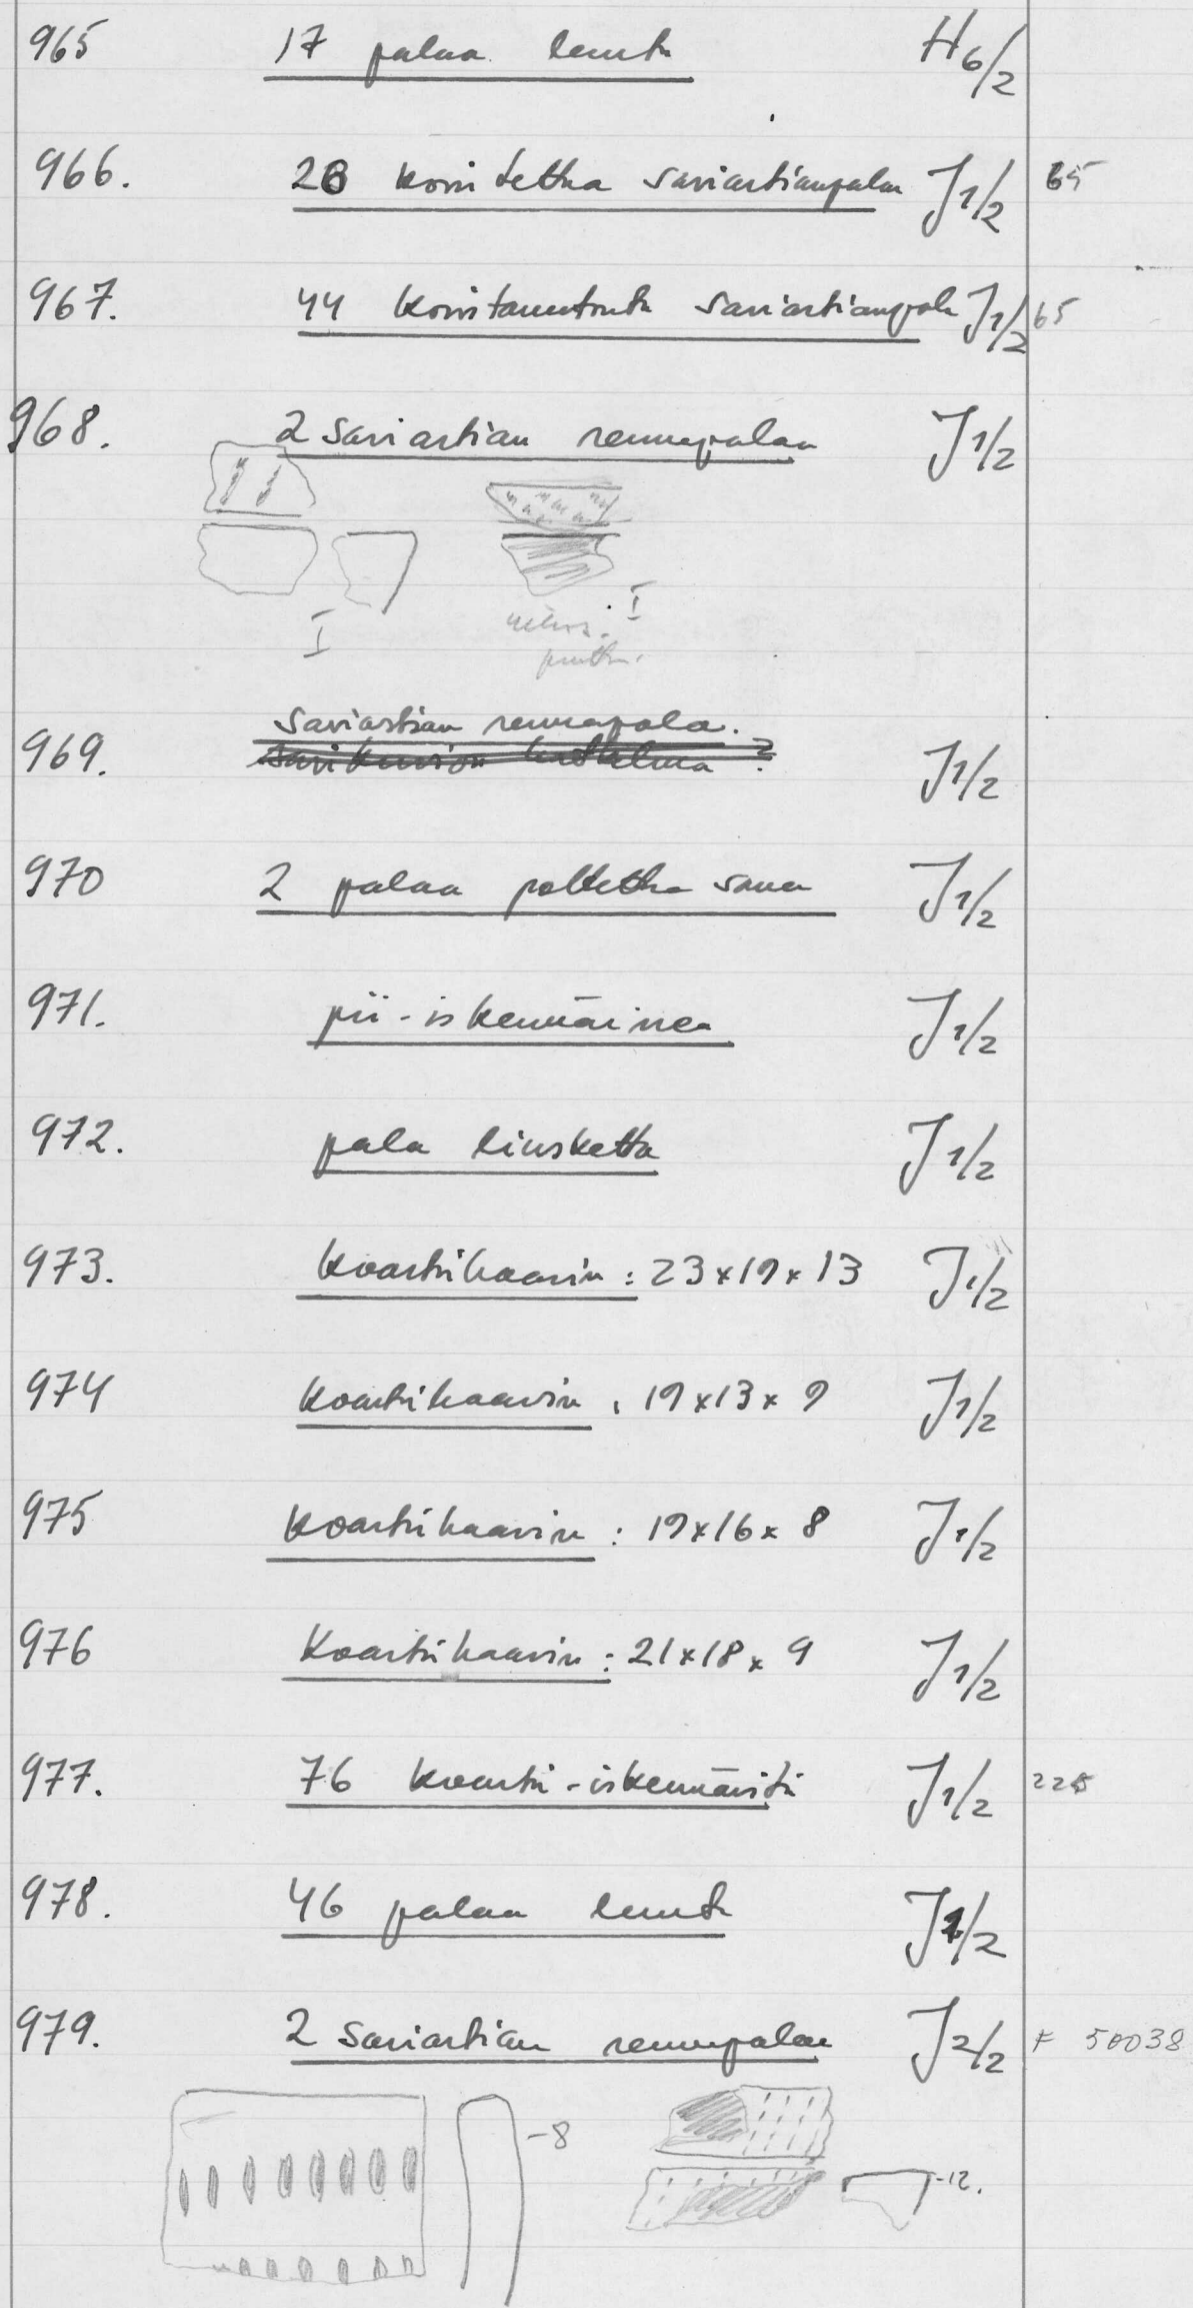 965 17 palaa luuta H6/2
966. 28 koristettua saviastianpalaa J1/2 65
967. 44 koristamatonta saviastianpalaa J1/2 65
968. 2 saviastian reunapalaa J1/2
I I
969. saviastian reunapala. J1/2
savikuvion katkelma ?
970 2 palaa poltettua savea J1/2
971. pii-iskemäinen J1/2
972. pala liusketta J1/2
973. kvartsikaavin : 23x19x13 J1/2
974 kvartsikaavin , 19x13x9 J1/2
975 kvartsikaavin : 19x16x8 J1/2
976 kvartsikaavin : 21x18x9 J1/2
977. 76 kvartsi-iskemäistä J1/2 225
978. 46 palaa luuta J1/2
979. 2 saviastian reunapalaa J2/2 F 50038
-8 -12.